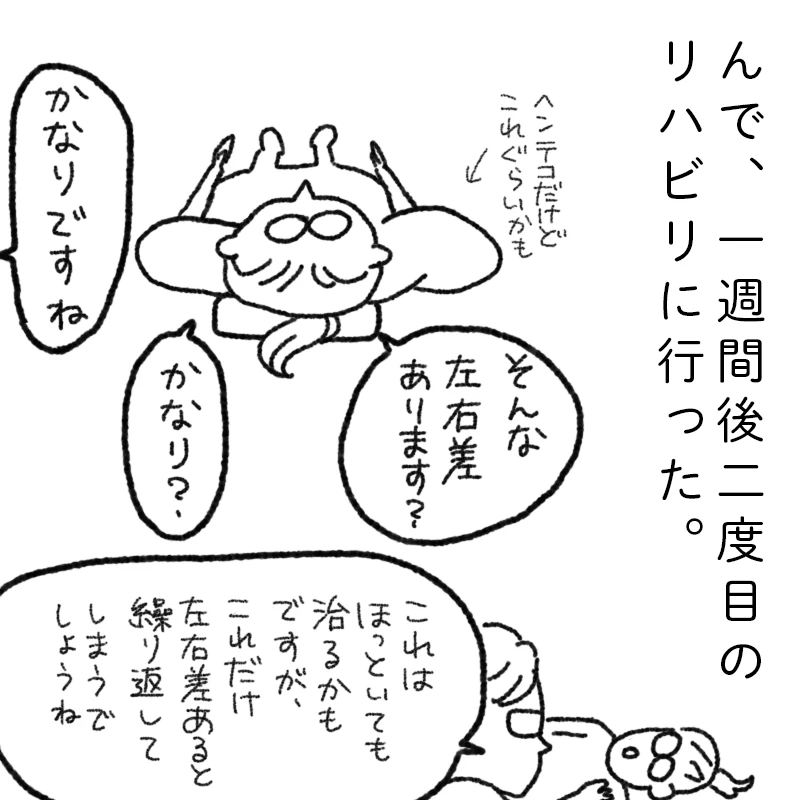 んで、一週間後二度目の
リハビリに行った。
ヘンテコだけど
これぐらいかも
そんな
左右差
あります?
かなり?
かなりですね
これは
ほっといても
治るかも
ですが、
これだけ
左右差あると
繰り返して
しまうで
しょうね